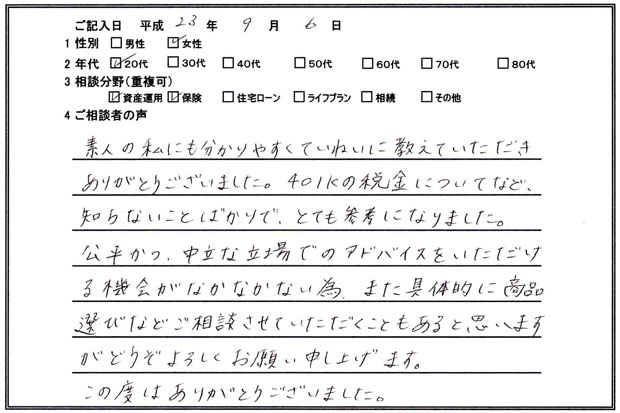 ご記入日 平成 23 年 9 月 6 日
1 性別 □男性 ☑女性
2 年代 ☑20代 □30代 □40代 □50代 □60代 □70代 □80代
3 相談分野(重複可)
☑資産運用 ☑保険 □住宅ローン □ライフプラン □相続 □その他
4 ご相談者の声
素人の私にも分かりやすくていねいに教えていただき
ありがとうございました。401Kの税金についてなど、
知らないことばかりで、とても参考になりました。
公平かつ、中立な立場でのアドバイスをいただけ
る機会がなかなかない為、また具体的に商品
選びなどご相談させていただくこともあると思います
がどうぞよろしくお願い申し上げます。
この度はありがとうございました。